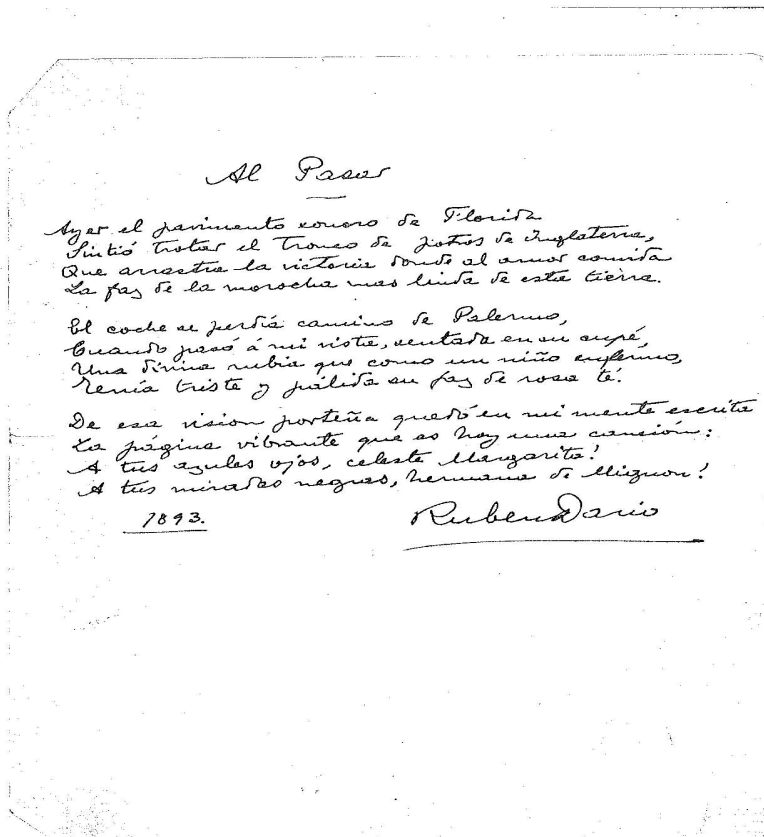 Al Pasar
Ayer el pavimento sonoro de Florida
Sintió trotar el tronco de potros de Inglaterra,
Que arrastra la victoria donde al amor convida
La faz de la morocha mas linda de esta tierra.
El coche se perdía camino de Palermo,
Cuando pasó á mi vista, sentada en su cupé,
Una divina rubia que como un niño enfermo,
Tenía triste y pálida su faz de rosa té.
De esa vision porteña quedó en mi mente escrita
La página vibrante que es hoy una canción:
A tus azules ojos, celeste Margarita!
A tus miradas negras, hermana de Mignon!
1893.
Ruben Dario